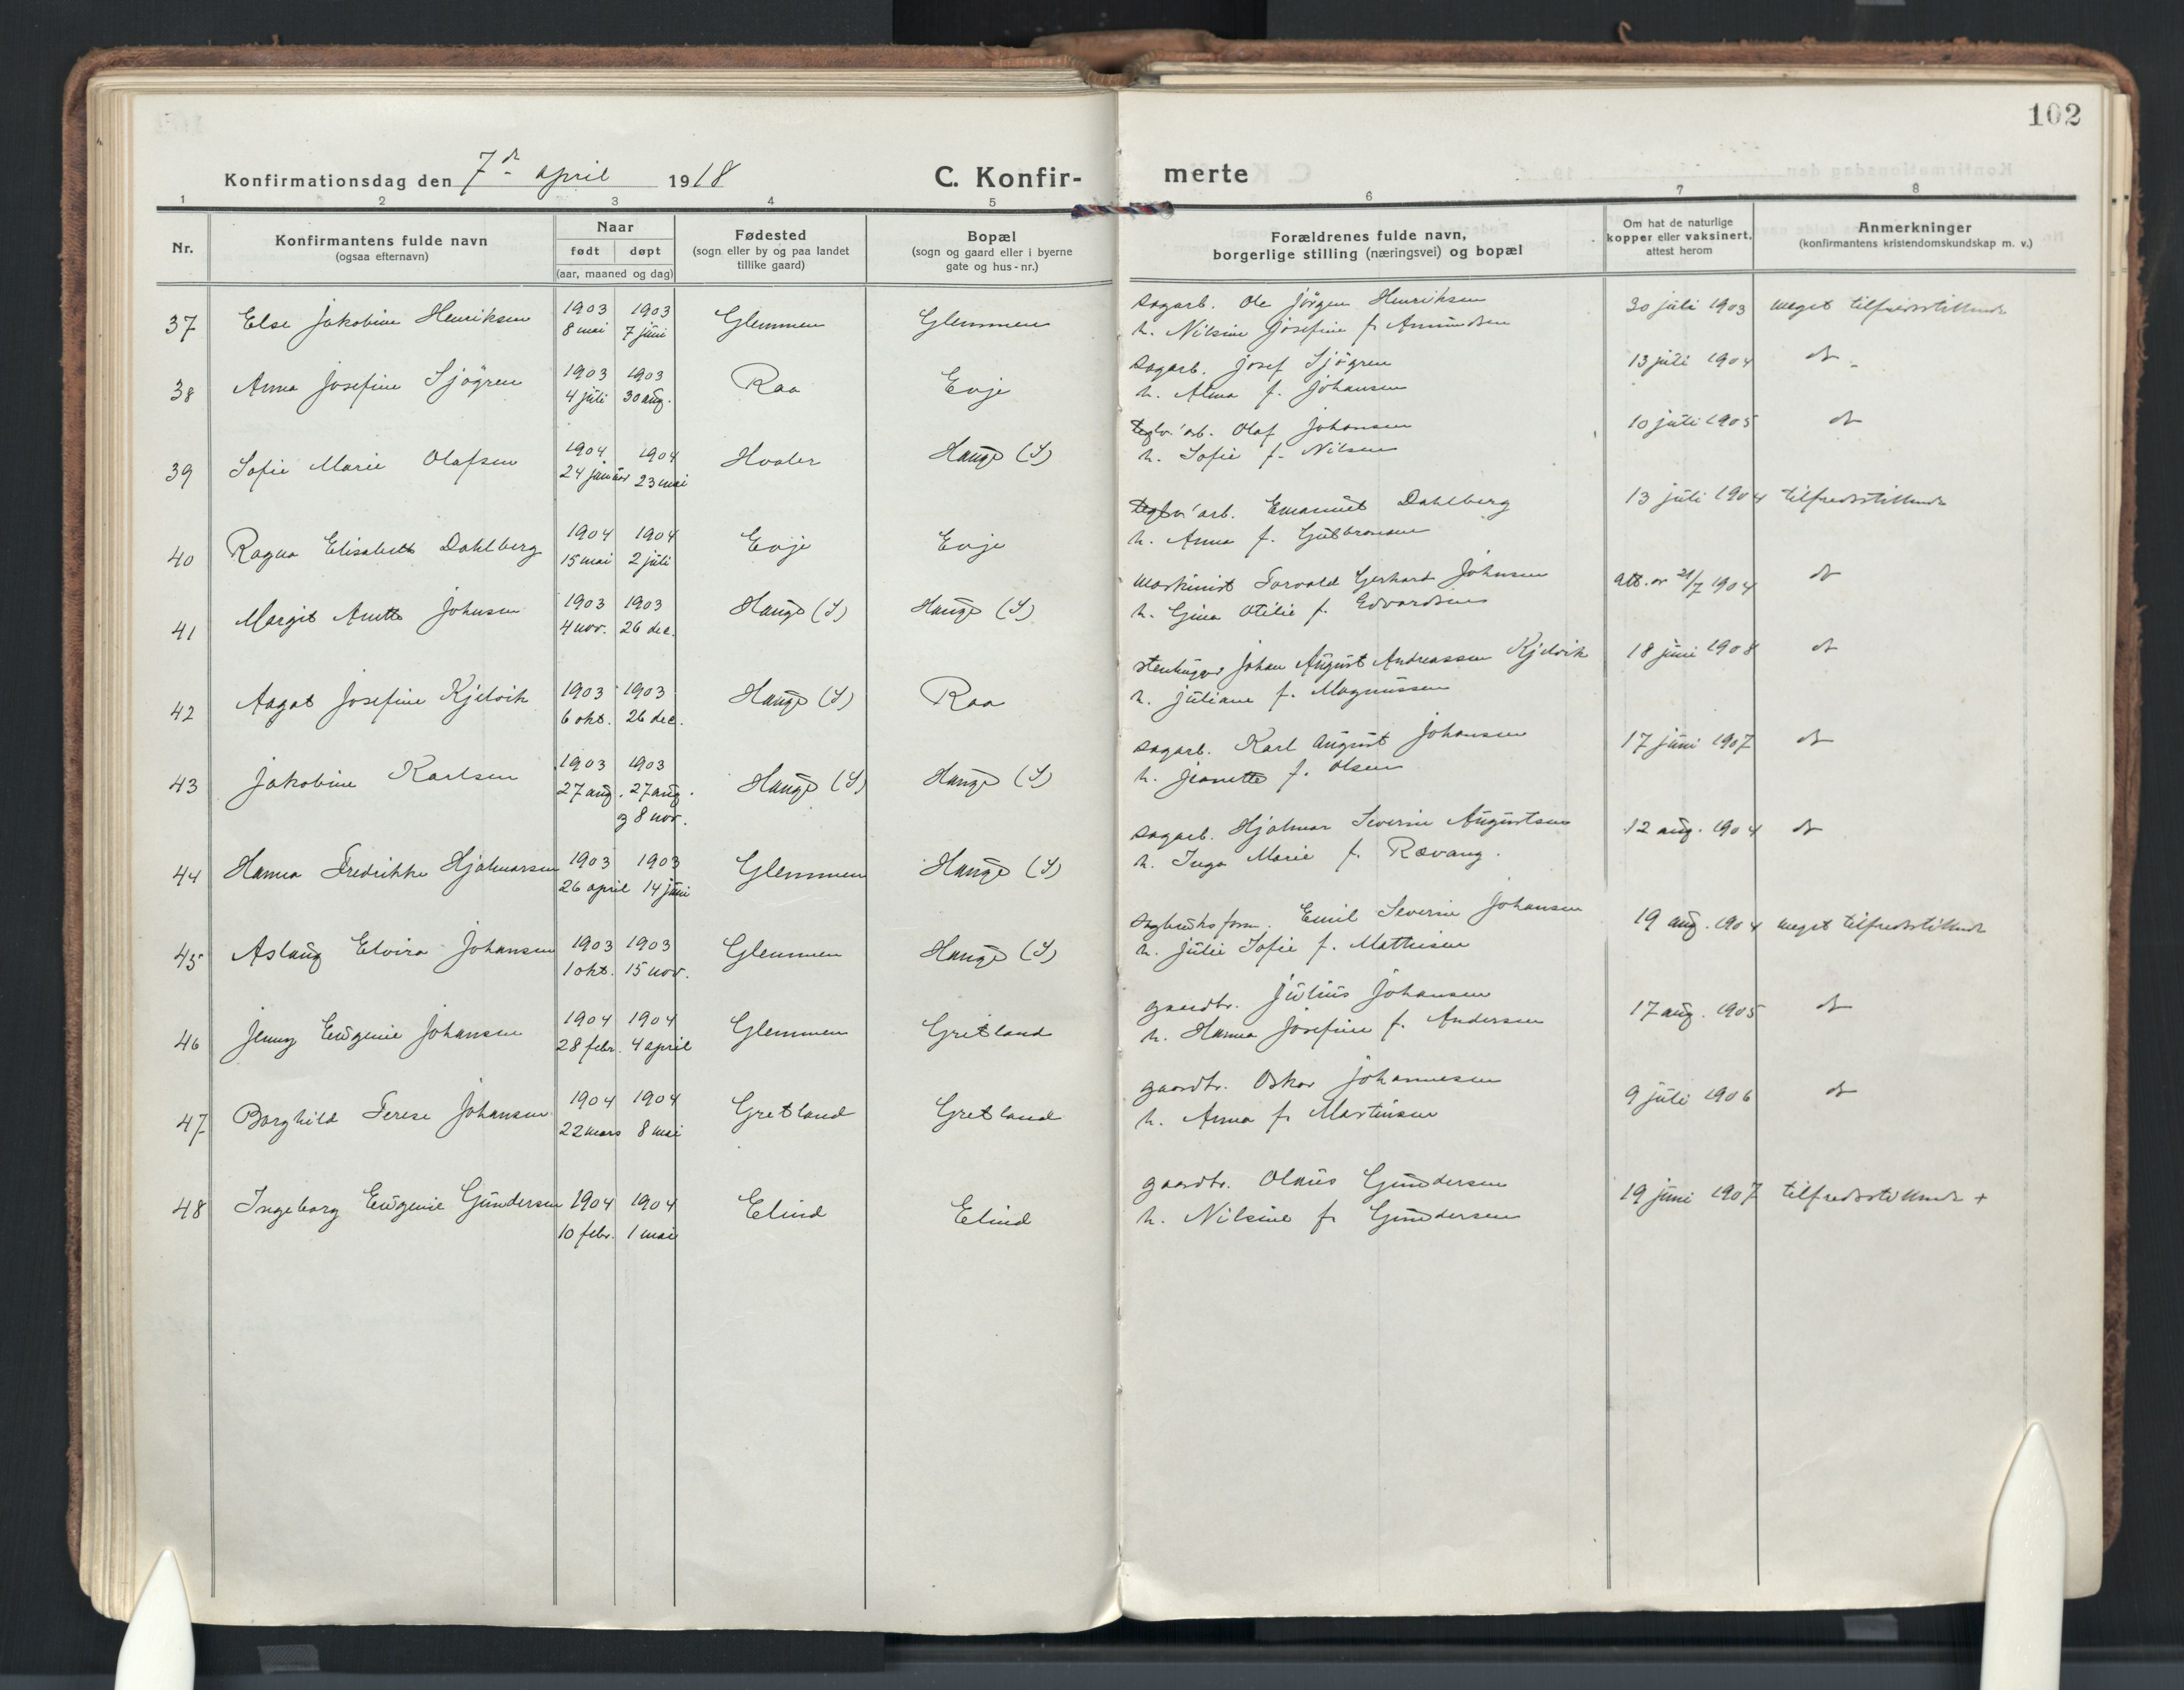 102
Konfirmationsdag den 7de april 1918
C. Konfirmerte
1 2 3 4 5 6 7 8
Nr.
Konfirmantens fulde navn
(ogsaa efternavn)
Naar
født døpt
(aar, maaned og dag)
Fødested
(sogn eller by og paa landet
tillike gaard)
Bopæl
(sogn og gaard eller i byerne
gate og hus-nr.)
Forældrenes fulde navn,
borgerlige stilling (næringsvei) og bopæl
Om hat de naturlige
kopper eller vaksinert,
attest herom
Anmerkninger
(konfirmantens kristendomskundskap m. v.)
37 Else Jakobine Henriksen 1903 8 mai 1903 7 juni Glemmen Glemmen
Dagarb. Ole Jörgen Henriksen
h. Nilsine Josefine f. Amundsen
30 juli 1903 meget tilfredsstillende
38 Anna Josefine Sjögren 1903 4 juli 1903 30 aug. Raa Evje
Dagarb. Josef Sjögren
h. Alma f. Johansen
13 juli 1904 do
39 Sofie Marie Olafsen 1904 24 januar 1904 23 mai Hvaler Haugs (S)
teglv. arb. Olaf Johansen
h. Sofie f. Nilsen
10 juli 1905 do
40 Ragna Elisabeth Dahlberg 1904 15 mai 1904 2 juli Evje Evje
teglv. arb. Emanuel Dahlberg
h. Anna f. Gulbransen
13 juli 1904 tilfredsstillende
41 Margit Anette Johnsen 1903 4 nov. 1903 26 dec. Haugs (S) Haugs (S)
maskinist Torvald Gerhard Johnsen
h. Gina Otilie f. Edvardsen
att. av 21/7 1904 do
42 Aagot Josefine Kjelvik 1903 6 okt. 1903 26 dec. Haugs (S) Raa
stenhugger Johan August Andreassen Kjelvik
h. Juliane f. Magnussen
18 juni 1908 do
43 Jakobine Karlsen 1903 27 aug. 1903 27 aug. og 8 nov. Haugs (S) Haugs (S)
Dagarb. Karl August Johansen
h. Jeanette f. Olsen
17 juni 1907 do
44 Hanna Fredrikke Hjalmarsen 1903 26 april 1903 14 juni Glemmen Haugs (S)
Dagarb. Hjalmar Severin Augustsen
h. Inga Marie f. Rævang.
12 aug. 1904 do
45 Aslaug Elvira Johansen 1903 1 okt. 1903 15 nov. Glemmen Haugs (S)
Sagbruksform. Emil Severin Johansen
h. Julie Sofie f. Mathisen
19 aug. 1904 meget tilfredsstillende
46 Jenny Eugenie Johansen 1904 28 febr. 1904 4 april Glemmen Gretland
gaardbr. Julius Johansen
h. Hanna Josefine f. Andersen
17 aug. 1905 do
47 Borghild Terese Johansen 1904 22 mars 1904 8 mai Gretland Gretland
gaardbr. Oskar Johannesen
h. Anna f. Martinsen
9 juli 1906 do
48 Ingeborg Eugenie Gundersen 1904 10 febr. 1904 1 mai Elind Elind
gaardbr. Olaus Gundersen
h. Nilsine f. Gundersen
19 juni 1907 tilfredsstillende +